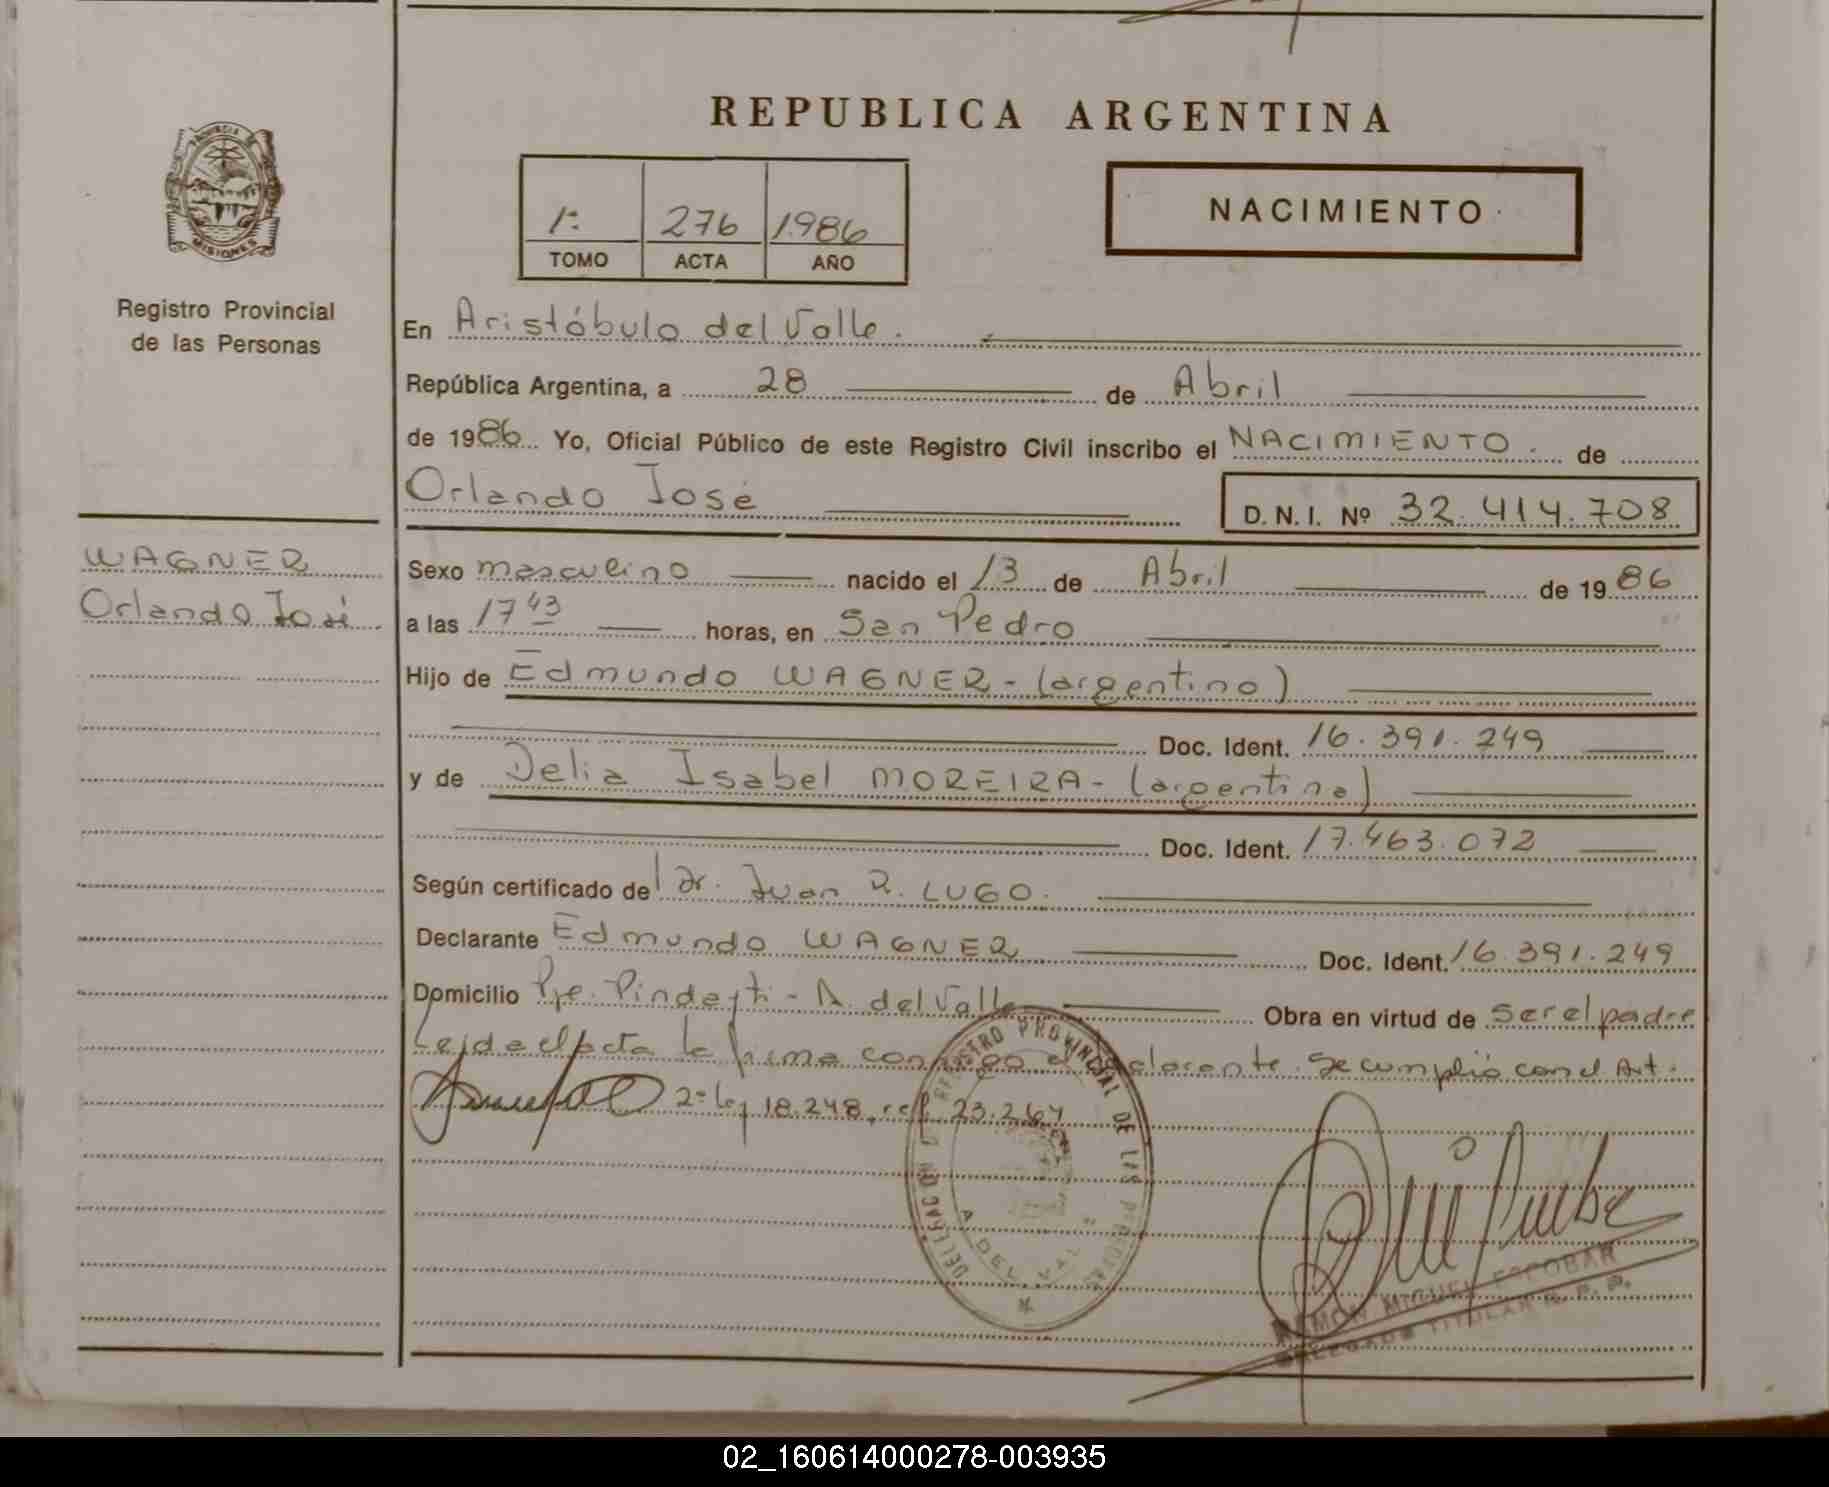 REPUBLICA ARGENTINA
PROVINCIA DE
MISIONES
Registro Provincial
de las Personas
1º 276 1986
TOMO ACTA AÑO
NACIMIENTO
En Aristóbulo del Valle.
República Argentina, a 28 de Abril
de 1986 Yo, Oficial Público de este Registro Civil inscribo el NACIMIENTO. de
Orlando José
D. N. I. Nº 32.414.708
WAGNER
Orlando José
Sexo masculino nacido el 13 de Abril de 1986
a las 17 43 horas, en San Pedro
Hijo de Edmundo WAGNER - (argentino)
Doc. Ident. 16.391.249
y de Delia Isabel MOREIRA - (argentina)
Doc. Ident. 17.463.072
Según certificado de Dr. Juan R. LUGO.
Declarante Edmundo WAGNER Doc. Ident. 16.391.249
Domicilio Pje. Pindayti - A. del Valle Obra en virtud de ser el padre
Leida el acta la firma conmigo el declarante. Se cumplió con el Art.
2º ley 18.248, ref. 23.264
DELEGACION REGISTRO PROVINCIAL DE LAS PERSONAS
A. DEL VALLE
RAMON MIGUEL ESCOBAR
DELEGADO TITULAR R. P. P.
02_160614000278-003935